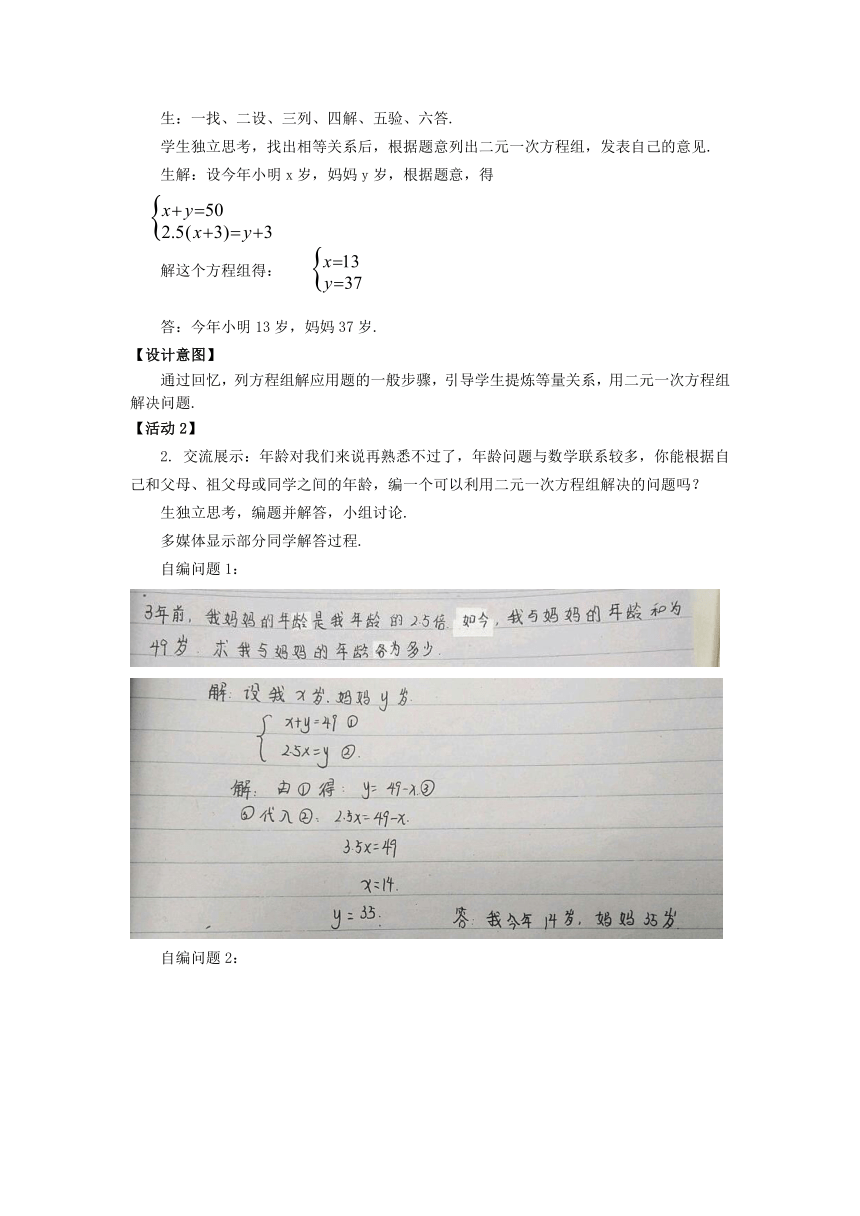 生：一找、二设、三列、四解、五验、六答.
学生独立思考，找出相等关系后，根据题意列出二元一次方程组，发表自己的意见.
生解：设今年小明 x 岁，妈妈 y 岁，根据题意，得
x+y=50
2.5(x+3)=y+3
解这个方程组得：
x=13
y=37
答：今年小明 13 岁，妈妈 37 岁.
【设计意图】
通过回忆，列方程组解应用题的一般步骤，引导学生提炼等量关系，用二元一次方程组
解决问题.
【活动 2】
2. 交流展示：年龄对我们来说再熟悉不过了，年龄问题与数学联系较多，你能根据自
己和父母、祖父母或同学之间的年龄，编一个可以利用二元一次方程组解决的问题吗？
生独立思考，编题并解答，小组讨论.
多媒体显示部分同学解答过程.
自编问题 1：
3年前，我妈妈的年龄是我年龄的2.5倍.如今，我与妈妈的年龄和为
49岁.求我与妈妈的年龄各为多少.
解:设我x岁.妈妈y岁.
x+y=49 ①
2.5x=y ②.
解：由①得：y=49-x.③
③代入②：2.5x=49-x.
3.5x=49
x=14.
y=35.
答:我今年14岁，妈妈35岁.
自编问题 2：